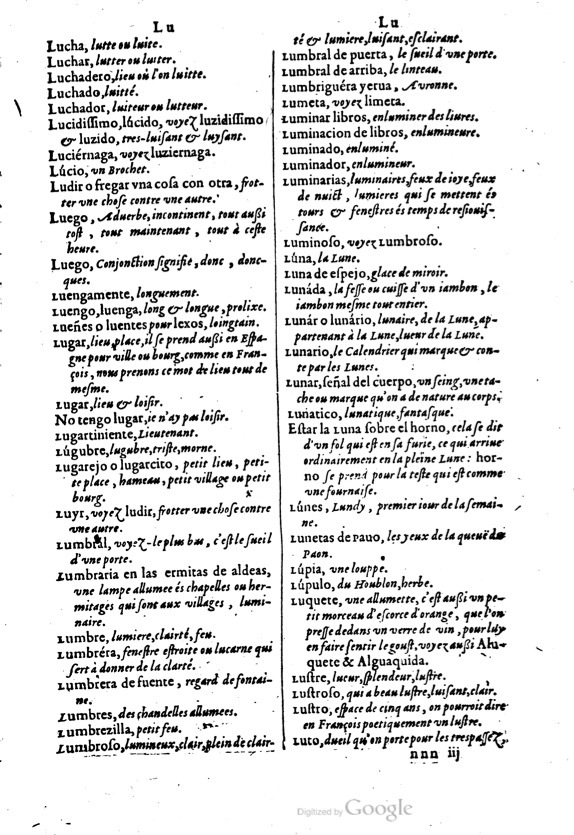 Lu
Lucha, lutte ou luite.
Luchar, lutter ou luiter.
Luchadero, lieu où l'on luitte.
Luchado, luitté.
Luchador, luiteur ou lutteur.
Lucidiſſimo, lúcido, voyez luzidiſſimo
& luzido, tres-luiſant & luyſant.
Luciérnaga, voyez luziernaga.
Lúcio, vn Brochet.
Ludir o fregar vna coſa con otra, frot-
ter vne choſe contre vne autre.
Luego, Aduerbe, incontinent, tout auſſi
toſt, tout maintenant, tout à ceſte
heure.
Luego, Conjonction ſignifie, donc, donc-
ques.
Luengamente, longuement.
Luengo, luenga, long & longue, prolixe.
Lueñes o luentes pour lexos, loingtain.
Lugar, lieu, place, il ſe prend auſſi en Eſpa-
gne pour ville ou bourg, comme en Fran-
çois, nous prenons ce mot de lieu tout de
meſme.
Lugar, lieu & loiſir.
No tengo lugar, ie n'ay pas loiſir.
Lugartiniente, Lieutenant.
Lúgubre, lugubre, triſte, morne.
Lugarejo o lugarcito, petit lieu, peti-
te place, hameau, petit village ou petit
bourg.
Luyr, voyez ludir, frotter vne choſe contre
vne autre.
Lumbral, voyez-le plus bas, c'eſt le ſueil
d'vne porte.
Lumbraria en las ermitas de aldeas,
vne lampe allumee és chapelles ou her-
mitages qui ſont aux villages, lumi-
naire.
Lumbre, lumiere, clairté, feu.
Lumbréra, feneſtre eſtroite ou lucarne qui
ſert à donner de la clarté.
Lumbrera de fuente, regard de fontai-
ne.
Lumbres, des chandelles allumees.
Lumbrezilla, petit feu.
Lumbroſo, lumineux, clair, plein de clair-
Lu
té & lumiere, luiſant, eſclairant.
Lumbral de puerta, le ſueil d'vne porte.
Lumbral de arriba, le linteau.
Lumbriguéra yerua, Auronne.
Lumeta, voyez limeta.
Luminar libros, enluminer des liures.
Luminacion de libros, enlumineure.
Luminado, enluminé.
Luminador, enlumineur.
Luminarias, luminaires, feux de ioye, feux
de nuict, lumieres qui ſe mettent és
tours & feneſtres és temps de reſiouiſ-
ſance.
Luminoſo, voyez Lumbroſo.
Lúna, la Lune.
Luna de eſpejo, glace de miroir.
Lunáda, la feſſe ou cuiſſe d'vn iambon, le
iambon meſme tout entier.
Lunár o lunário, lunaire, de la Lune, ap-
partenant à la Lune, lueur de la Lune.
Lunario, le Calendrier qui marque & con-
te par les Lunes.
Lunar, ſeñal del cuerpo, vn ſeing, vne ta-
che ou marque qu'on a de nature au corps.
Lunatico, lunatique, fantaſque.
Eſtar la Luna ſobre el horno, cela ſe dit
d'vn fol qui eſt en ſa furie, ce qui arriue
ordinairement en la pleine Lune: hor-
no ſe prend pour la teſte qui eſt comme
vne fournaiſe.
Lúnes, Lundy, premier iour de la ſemai-
ne.
Lunetas de pauo, les yeux de la queuë de
Paon.
Lúpia, vne louppe.
Lúpulo, du Houblon, herbe.
Luquete, vne allumette, c'eſt auſſi vn pe-
tit morceau d'eſcorce d'orange, que l'on
preſſe dedans vn verre de vin, pour luy
en faire ſentir le gouſt, voyez auſſi Alu-
quete & Alguaquida.
Luſtre, lueur, ſplendeur, luſtre.
Luſtroſo, qui a beau luſtre, luiſant, clair.
Luſtro, eſpace de cinq ans, on pourroit dire
en François poetiquement vn luſtre.
Luto, dueil qu'on porte pour les treſpaſſez,
nnn iij
Digitized by Google